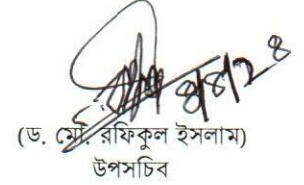 (ড. মো. রফিকুল ইসলাম)
উপসচিব